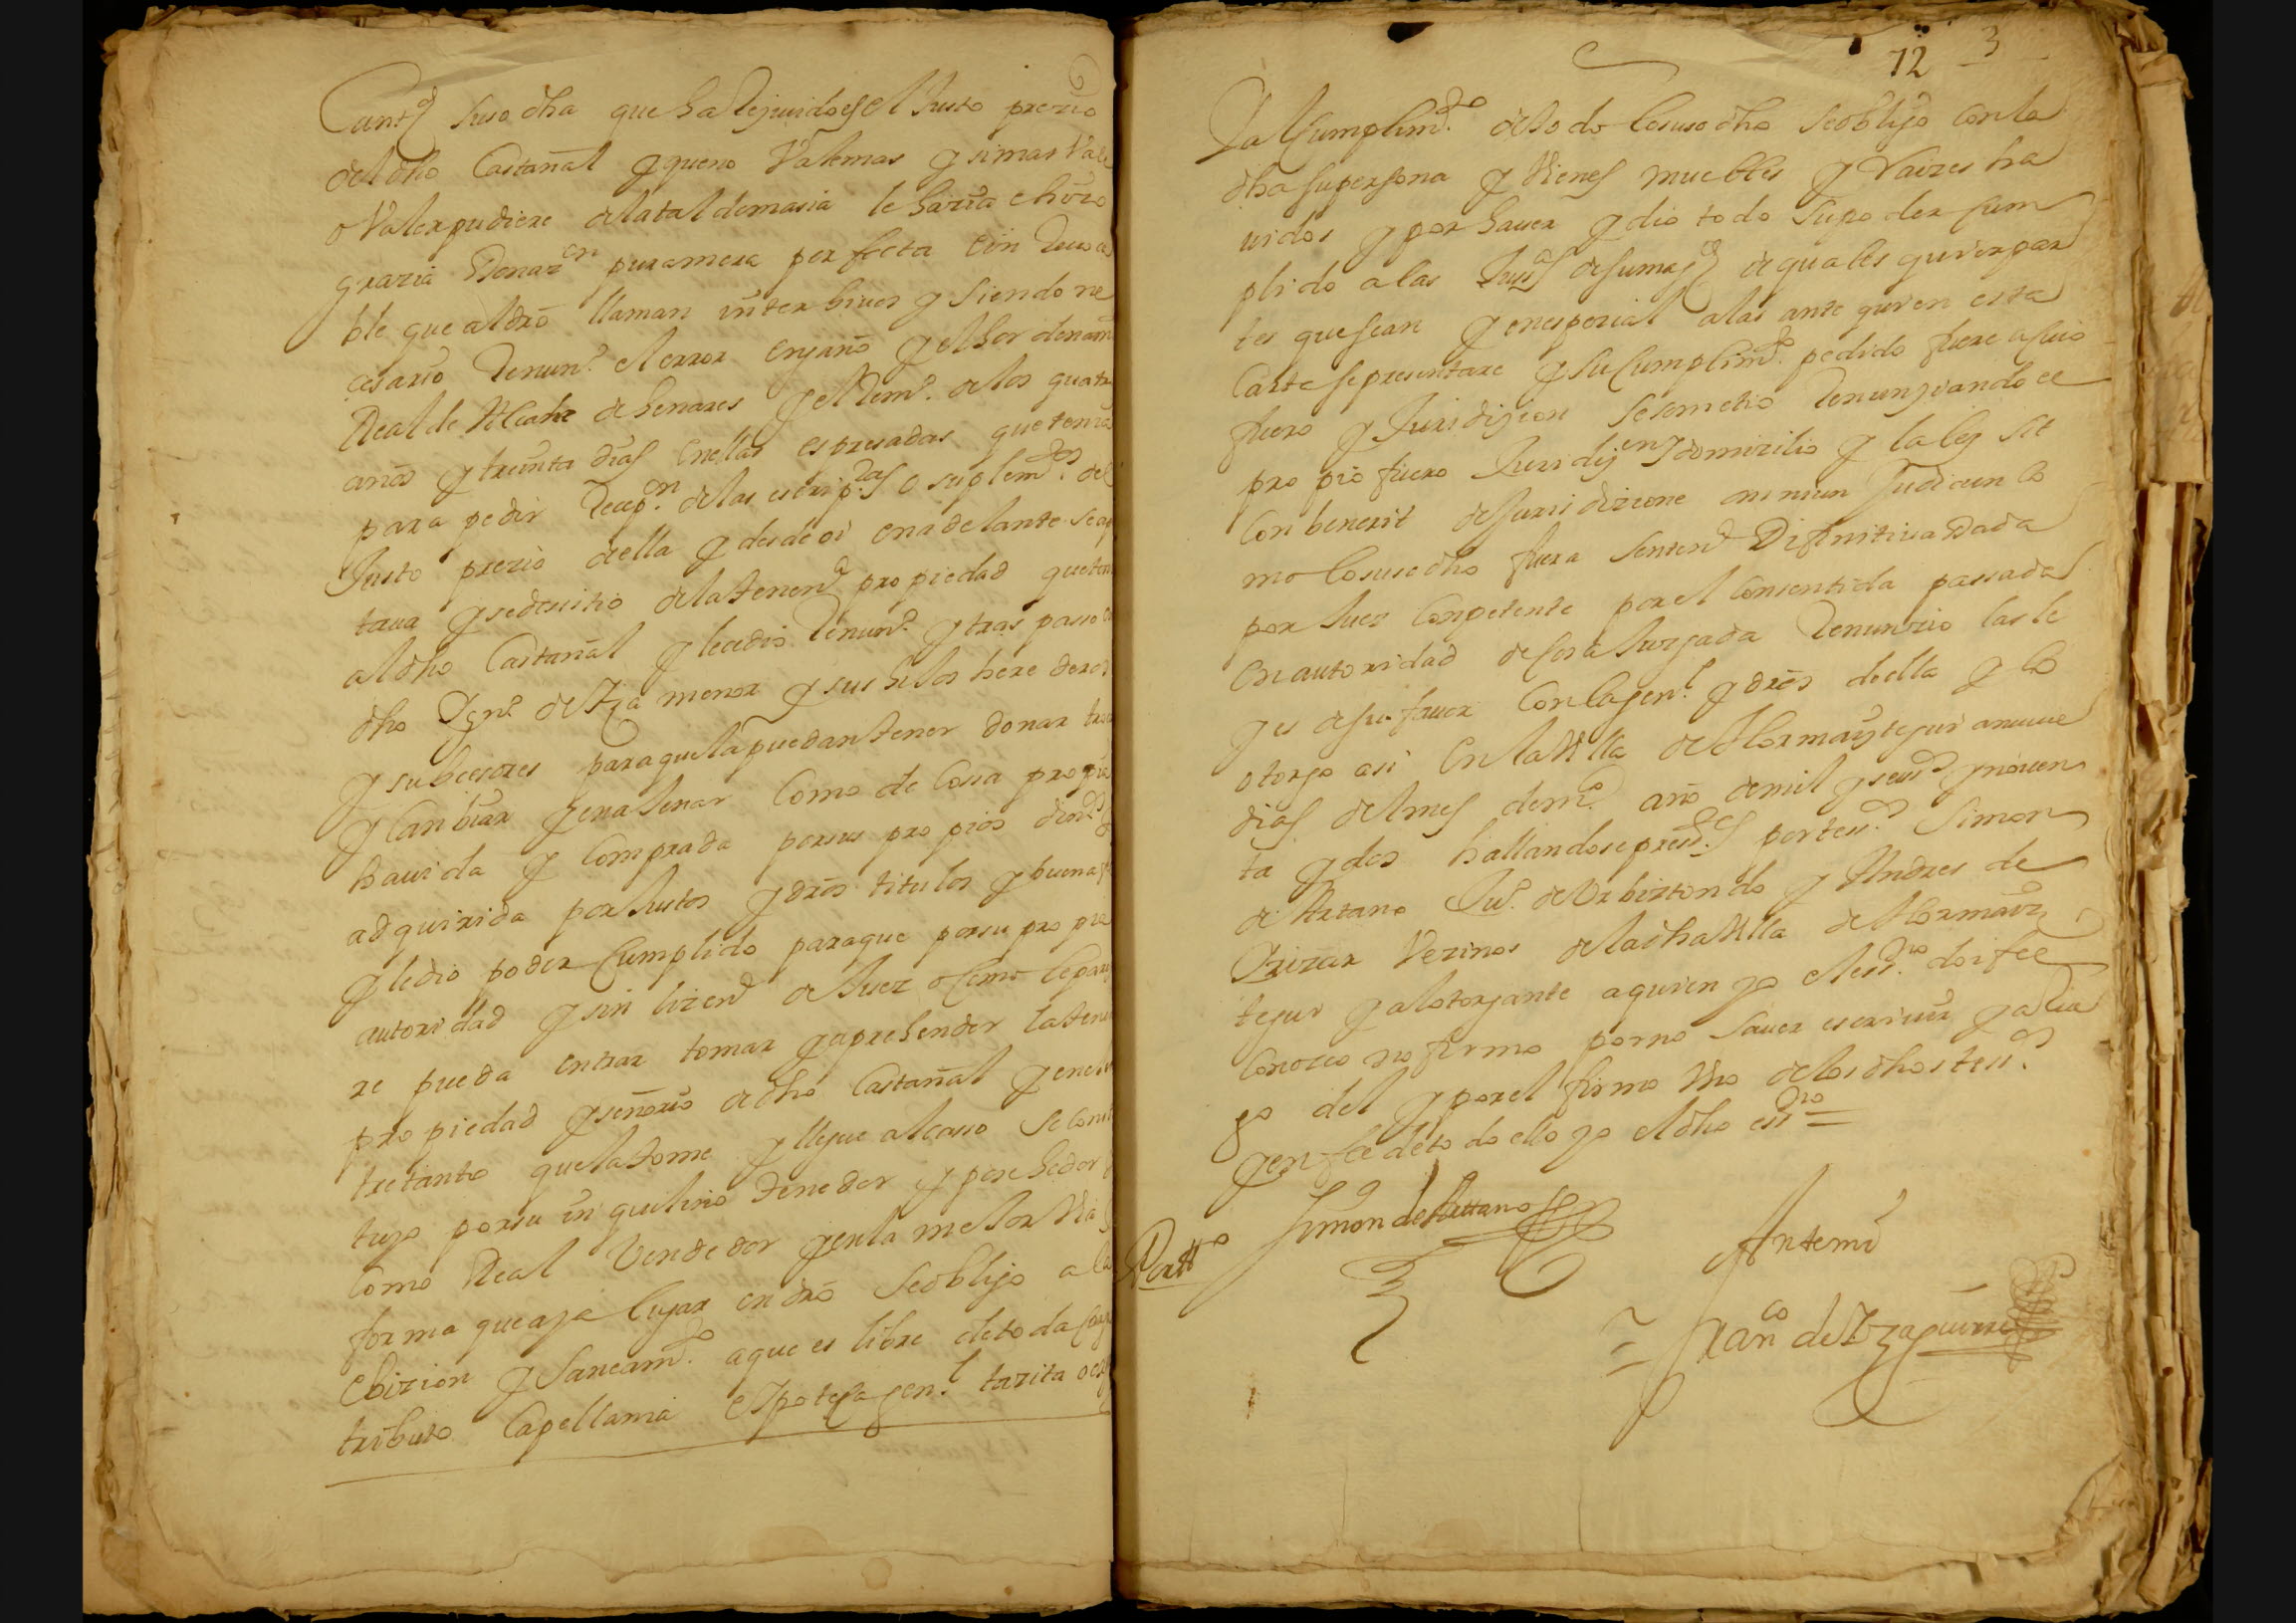 Cantd susodha que ha rejuido es el Justo prezio
del dho Castañal y que no Vale mas y si mas Vale
o Valer pudiere de la tal demasia le hazia e hizo
grazia Donazon pura mera perfecta Yn Revoca
ble que al dro llaman ynter bivos y siendo ne
cesario Renunº el error engaño y el hordenamº
Real de Alcala de henares y el Remº de los quatro
años y treinta dias en ellas espresadas que tenia
para pedir Recepon de las escripras o suplemtos del
Justo prezio de ella y desde oi en adelante se apar
tava y se desistio de la tenenª propiedad que tenia
al dho Castañal y le cedio Renunº y traspasso en
dho Ygnº de Yza menor y sus hijos herederos
y subcesores para que la puedan tener donar tro
y canbiar y enajenar Como de Cosa propia
havida y Comprada por sus propios dineros
adquirida por Justos y dros titulos y buena fe
y le dio poder Cumplido para que por su propia
autoridad y sin lizenª de Juez o Como le pare
re pueda entrar tomar y aprehender la tenen
propiedad y señorio de dho Castañal y en el en
tretanto que la tome y llegue al caso se consti
tuyo por su ynquilino tenedor y posehedor
Como Real Vendedor y en la mejor Via
forma que aya lugar en dro se obligo a la
ebizion y Saneamto a que es libre de toda carga
tributo Capellania e Ypoteca genl tazita o esp
72 3
Y al Cumplimto de todo lo susodho se obligo con la
dha su persona y Vienes muebles y Raizes ha
vidos y por haver y dio todo su poder Cum
plido a las Jusas de su magd de quales quier par
tes que sean y en espezial a las ante quien esta
Carta se presentare y su Cumplimto pedido fuere a cuio
fuero y Jurisdizion se sometio Renunziando el
propio fuero Juridizon y domizilio y la ley sit
Conbenerit de Jurisdizione onmiun Judicun Co
mo lo susodho fuera sentenª Difinitiva Dada
por Juez Conpetente por el Consentida passada
en autoridad de Cosa Juzgada Renunzio las le
yes de su favor Con la genl y dros de ella y lo
otorgo asi en la Villa de Hormaiztegui a nueve
dias del mes de mº año de mil y seisos y noven
ta y dos hallandose presntes por tesos Simon
de Artano Juº de Urbiztondo y Andres de
Ozizar Vezinos de la dha Villa de Hormaiz
tegui y al otorgante a quien yo el essno doi fee
Conozco no firmo por no saver escriuir y a Rue
go del y por el firmo Uno de los dhos tesos
y en fee de todo ello yo el dho essno =
Simon de Arttano
Antemi
Franco de Yzaguirre